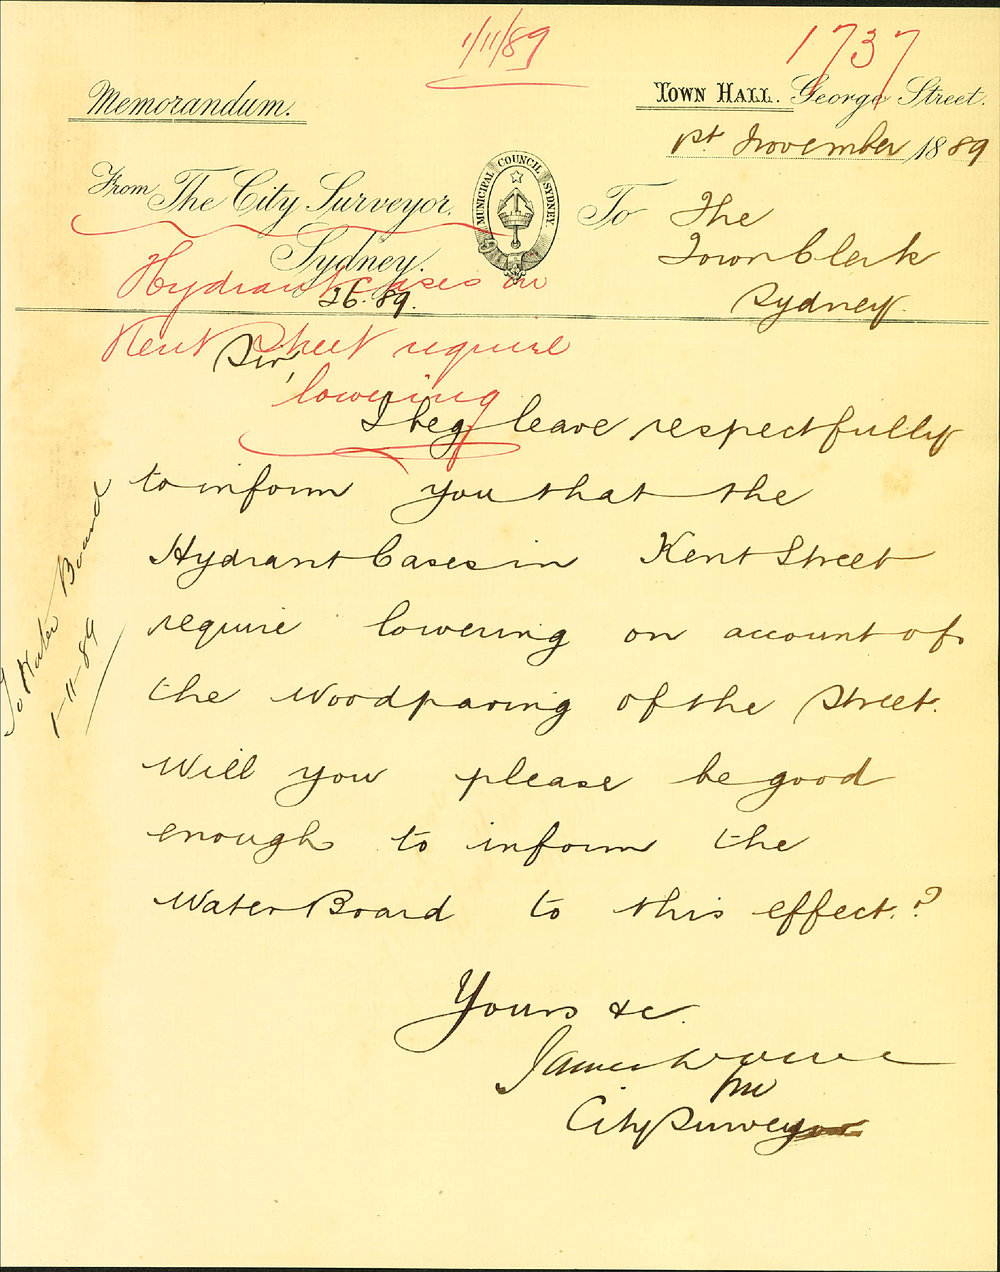 1/11/89
1737
Memorandum.
TOWN HALL. George Street.
1st November 1889
From The City Surveyor,
Sydney.
MUNICIPAL COUNCIL SYDNEY.
To The
Town Clerk
Sydney.
Hydrant cases in
Kent Street require
lowering
26.89.
Sir,
I beg leave respectfully
to inform you that the
Hydrant Cases in Kent Street
require lowering on account of
the Woodpaving of the Street.
Will you please be good
enough to inform the
Water Board to this effect.?
Yours &c.
James
City Surveyor
To Water Board
1-11-89